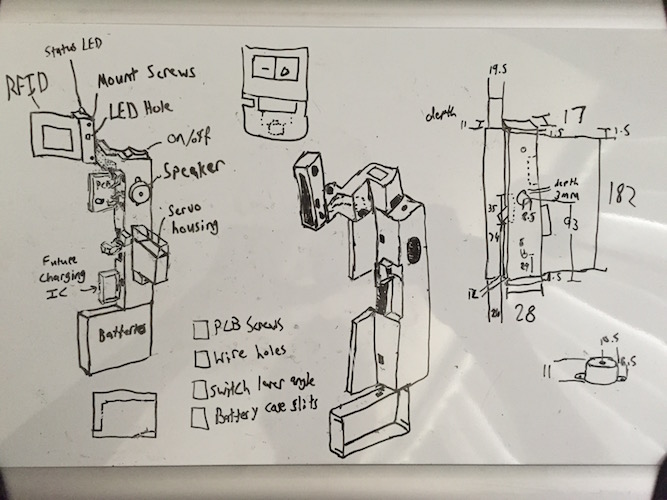 Status LED
RFID
Mount Screws
LED Hole
on/off
PCB
Speaker
Servo
housing
Future
Charging
IC
Batteries
PCB Screws
Wire holes
Switch lower angle
Battery case slits
19.5
depth
11
17
1.5
1.5
depth
2mm
182
35
8.5
93
24
29
1.5
12
26
28
10.5
11